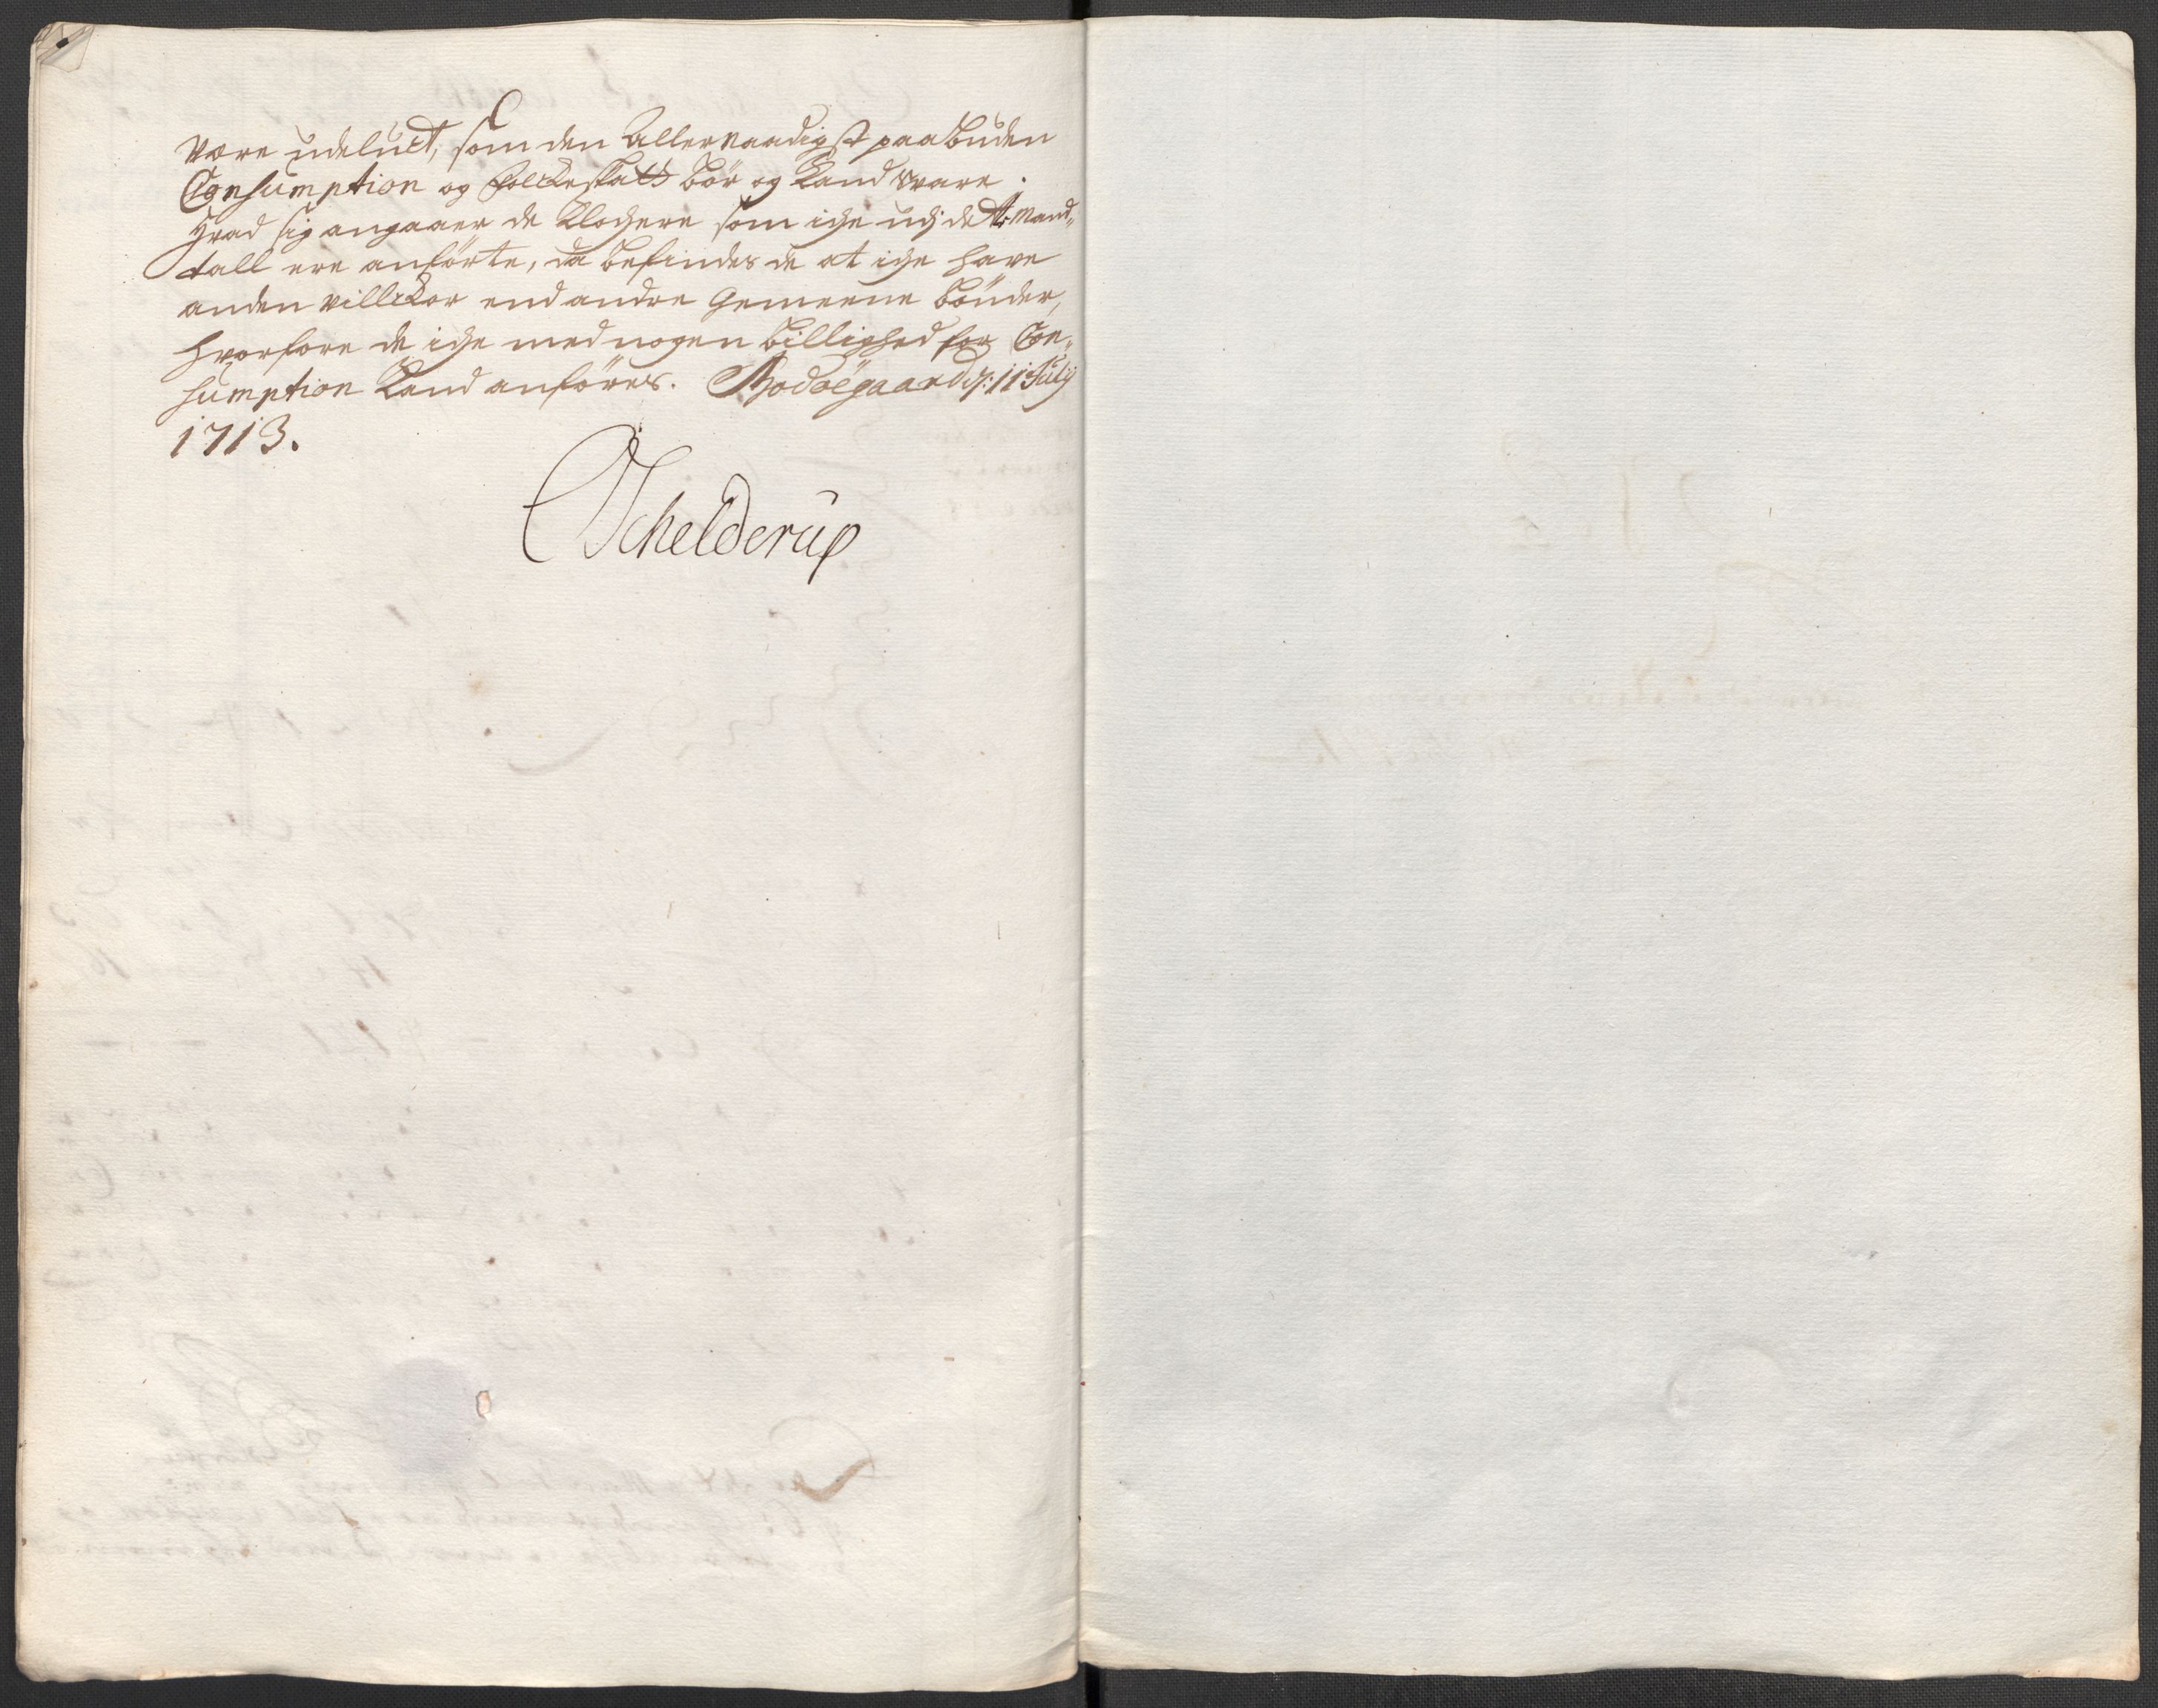 være udeluct, som den Allernaadigst paabuden
Consumption og Folckeskatt bör og kand svare.
Hvad sig angaaer de Klochere som iche udj dette Mand„
tall ere anförte, da befindes de at iche have
anden villckor end andre gemeene bönder,
hvorfore de iche med nogen billighed for Con„
sumption kand anföres. Bodöegaard d: 11 Julij
1713.
Schelderup